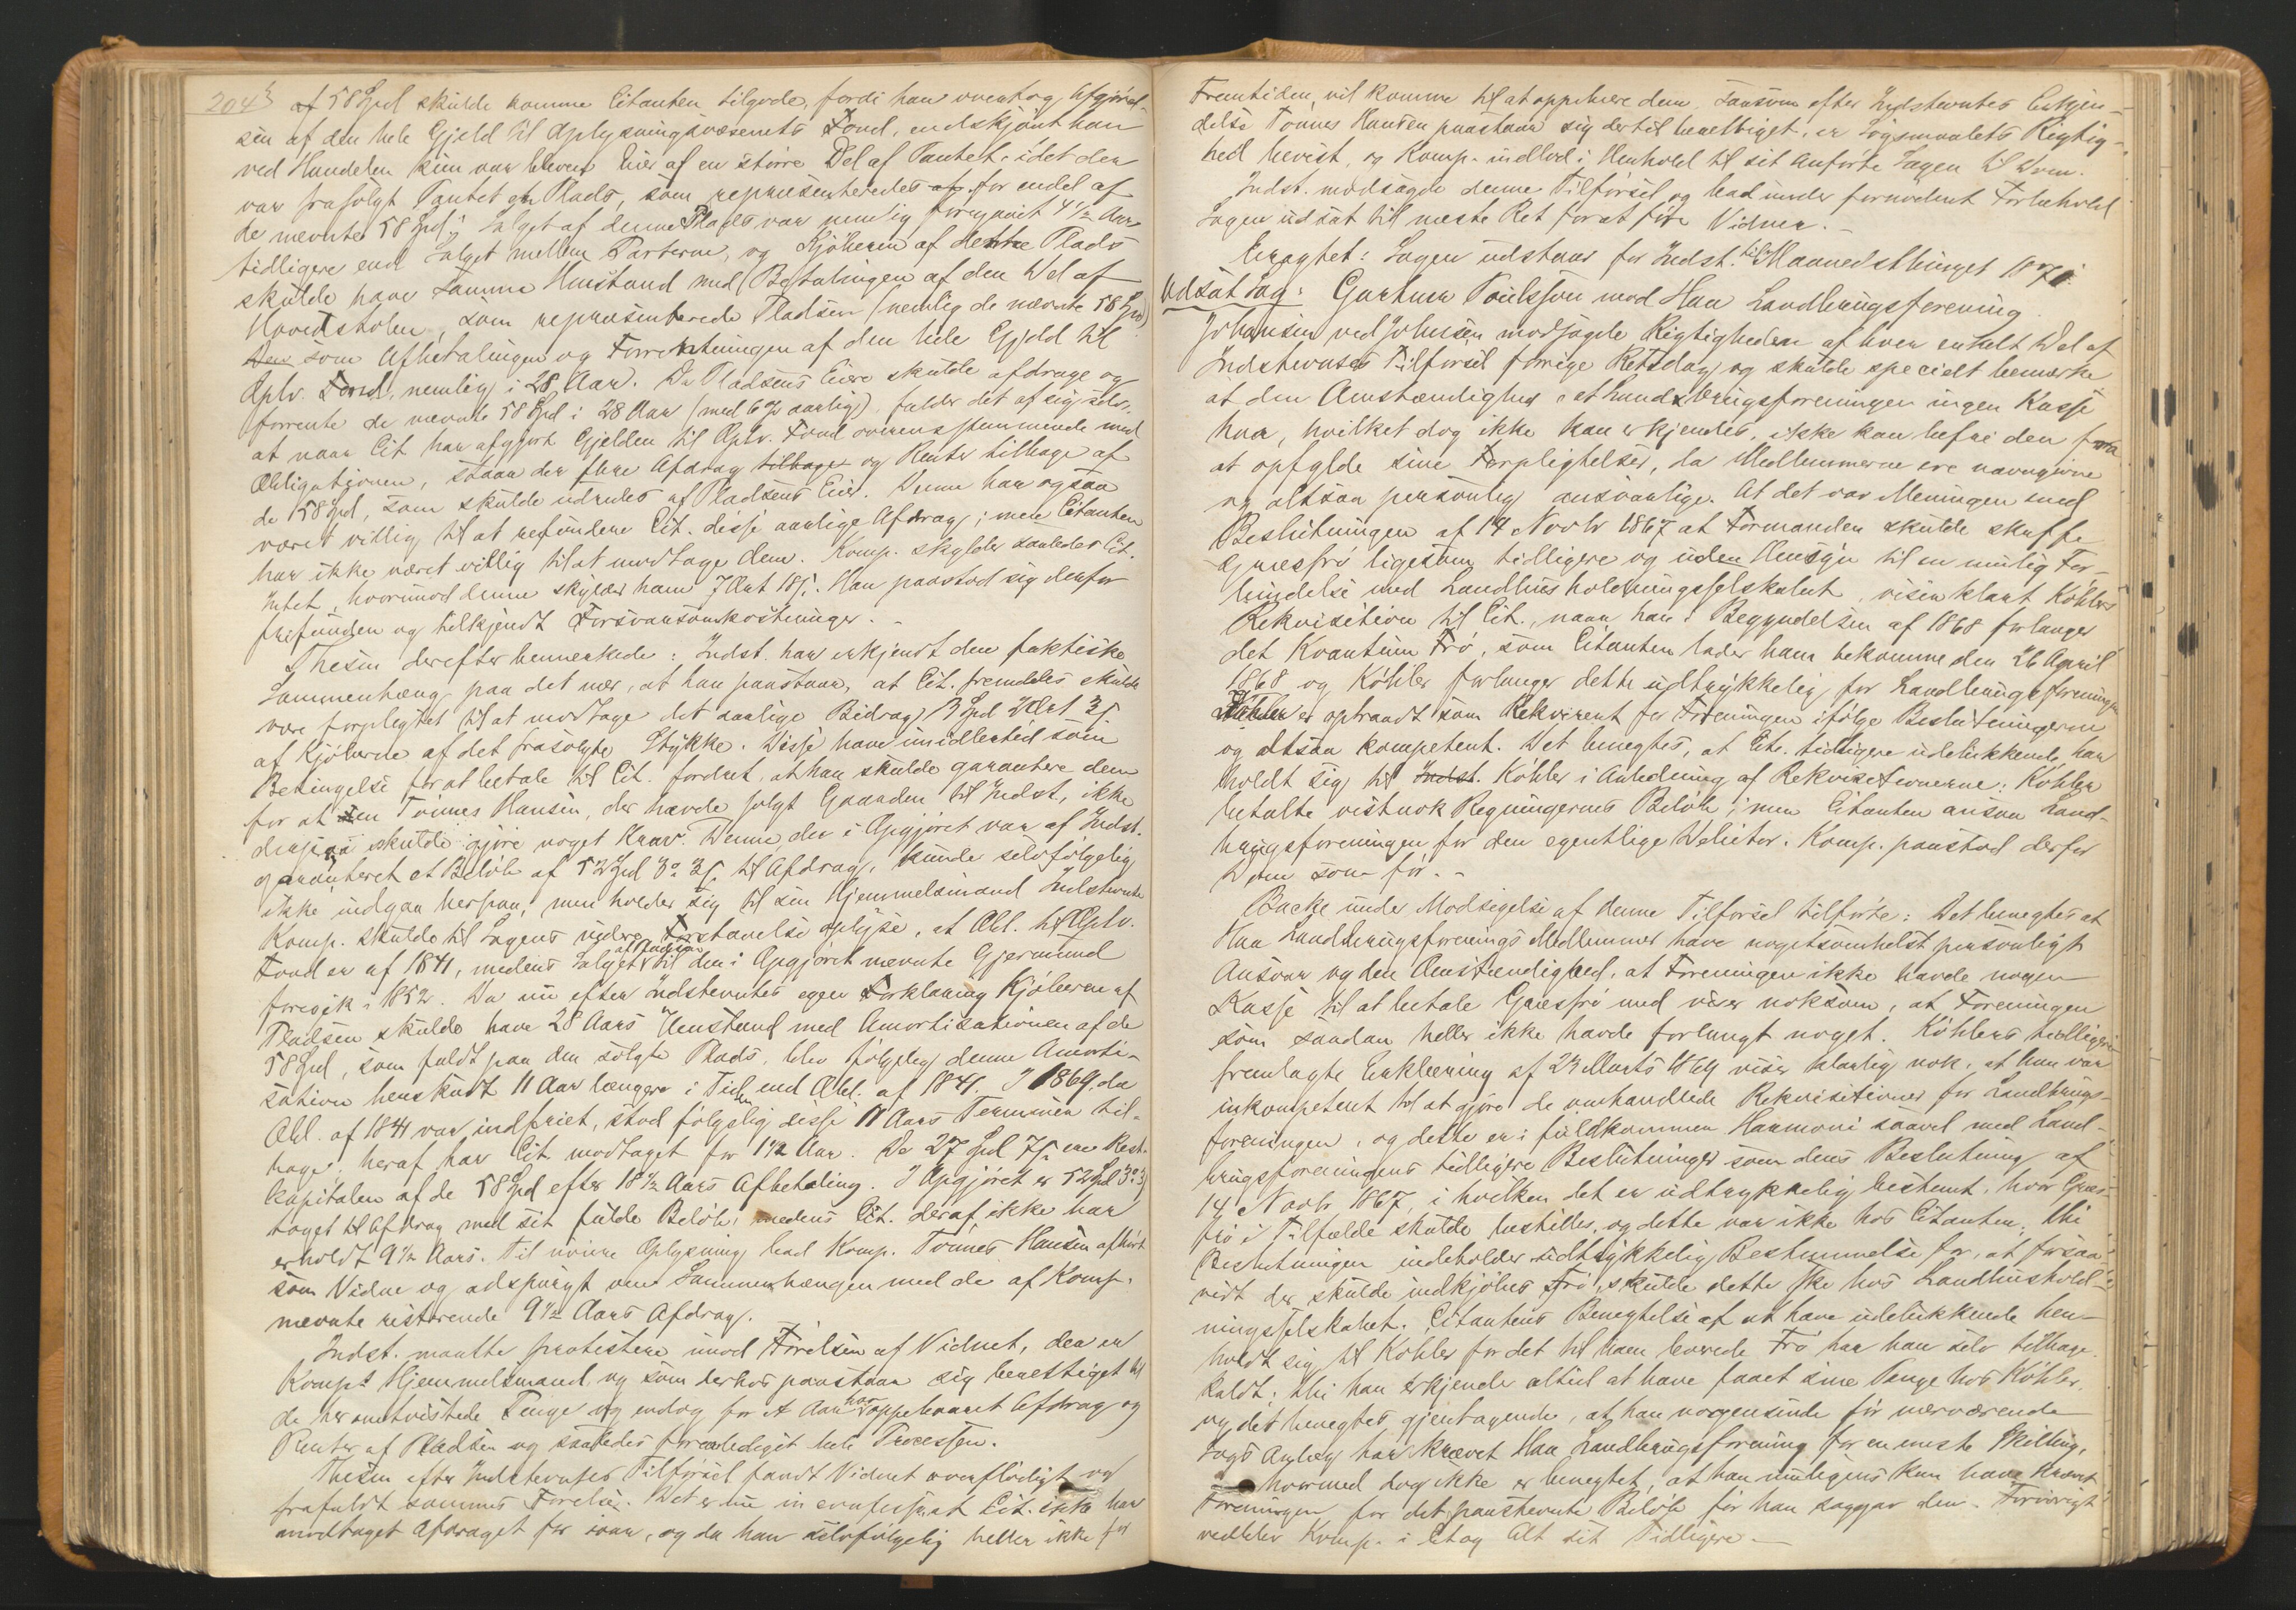 204b
af 58 Spd skulde komme Citanten tilgode, fordi han overtog Afgjørel-
sen af den hele Gjeld til Oplysningsvæsenets Fond, endskjønt han
ved Handelen kun var bleven Eier af en større Del af Pantet, idet der
var frasolgt Pantet en Plads, som repræsenteredes af for endel af
de nævnte 58 Spd; Salget af denne Plads var nemlig foregaaet 4 1/2 Aar
tidligere end Salget mellem Parterne, og Kjøberen af dette Plads
skulde have samme Henstand med Betalingen af den Del af
Hovedstolen, som repræsenterede Pladsen (nemlig de nævnte 58 Spd)
den som Afbetalingen og Forrentningen af den hele Gjeld til
Oplv. Fond, nemlig i 28 Aar. Da Pladsens Eiere skulde afdrage og
forrente de nævnte 58 Spd i 28 Aar (med 6 % aarlig), falder det af sig selv,
at naar Cit har afgjort Gjelden til Oplv. Fond overensstemmende med
Obligationen, staar der flere Afdrag tilbage og Renter tilbage af
de 58 Spd, som skulde udredes af Pladsens Eier. Denne har ogsaa
været villig til at refundere Cit. disse aarlige Afdrag; men Citanten
har ikke været villig til at modtage dem. Komp. skylder saaledes Cit.
Intet, hvorimod denne skylder ham 7 Ort 18 s. Han paastod sig derfor
frifunden og tilkjendt Forsvarsomkostninger. -
Thesen derefter bemerkede: Indst. har erkjendt den faktiske
Sammenhæng paa det nær, at han paastaar, at Cit. fremdeles skulde
være forpligtet til at modtage det aarlige Bidrag 3 Spd 2 Ort 3 s
af Kjøberne af det frasolgte Stykke. Disse have imidlertid som
Betingelse for at betale til Cit. fordret, at han skulde garantere dem
for at den Tønnes Hansen, der havde solgt Gaarden til Indst., ikke
desisaa skulde gjøre noget Krav. Denne, der i Opgjøret var af Indst.
garanteret et Beløb af 52 Spd 3 o 3 s. til Afdrag, kunde selvfølgelig
ikke indgaa herpaa, men holder sig til sin Hjemmelsmand Indstevnte
Komp. skulde til Sagens videre Forstaaelse oplyse, at Obl. til Oplv.
Fond er af 1841, medens Salget af Pladsen til den i Opgjøret nævnte Gjermund
foregik i 1852. Da nu efter Indstevntes egen Forklaring Kjøberen af
Pladsen skulde have 28 Aars Henstand med Amortisationen af de
58 Spd, som faldt paa den solgte Plads, blev følgelig denne Amorti-
sation henskudt 11 Aar længere i Tiden end Obl. af 1841. I 1869, da
Obl. af 1841 var indfriet, stod følgelig disse 11 Aars Terminer til-
bage; heraf har Cit. modtaget for 1 1/2 Aar. De 27 Spd 75 ere Rest-
kapitalen af de 58 Spd efter 18 1/2 Aars Afbetaling. I Opgjøret er 52 Spd 3 o 3 s
taget til Afdrag med sit fulde Beløb, medens Cit. deraf ikke har
erholdt 9 1/2 Aars. Til nøiere Oplysning bad Komp. Tønnes Hansen afhørt
som Vidne og adspurgt om Sammenhængen med de af Komp.
nævnte resterende 9 1/2 Aars Afdrag.
Indst. maatte protestere imod Førelsen af Vidnet, der er
Komps Hjemmelsmand, og som derhos paastaar sig berettiget til
de her omtvistede Penge og endog for et Aar har oppebaaret Afdrag og
Renter af Pladsen og saaledes foranlediget hele Processen.
Thesen efter Indstevntes Tilførsel fandt Vidnet overflødigt og
frafaldt sammes Førelse. Det er nu in confesso, at Cit. ikke har
modtaget Afdraget for ivaar, og da han selvfølgelig heller ikke for
Fremtiden vil komme til at oppebære dem, saasom efter Indstevntes Erkjen-
delse Tønnes Hansen paastaar sig dertil berettiget, er Søgsmaalets Rigtig-
hed bevist, og Komp. indlod i Henhold til sit Anførte Sagen til Dom.
Indst. modsagde denne Tilførsel og bad under fornødent Forbehold
Sagen udsat til næste Ret for at føre Vidner. -
Eragtet: Sagen udstaar for Indst. til Maanedsthinget 1871.
Udsat Sag: Gartner Poulsson mod Haa Landbrugsforening.
Johansen ved Johnsen modsagde Rigtigheden af hver enkelt Del af
Indstevntes Tilførsel forrige Retsdag og skulde specielt bemærke
at den Omstændighed, at Landbrugsforeningen ingen Kasse
har, hvilket dog ikke kan erkjendes, ikke kan befri den fra
at opfylde sine Forpligtelser, da Medlemmerne ere navngivne
og altsaa personlig ansvarlige. At det var Meningen med
Beslutningen af 14 Novbr 1867 at Formanden skulde skaffe
Græsfrø ligesom tidligere og uden Hensyn til en mulig For-
bindelse med Landhusholdningsselskabet, viser klart Köhlers
Rekvisition til Cit., naar han i Begyndelsen af 1868 forlanger
det Kvantum Frø, som Citanten lader ham bekomme den 26 April
1868 og Köhler forlanger dette udtrykkelig for Landbrugsforeningen
Köhler er optraadt som Rekvirent for Foreningen ifølge Beslutningerne
og altsaa kompetent. Det benegtes, at Cit. tidligere udelukkende har
holdt sig til Indst. Köhler i Anledning af Rekvisitionerne; Köhler
betalte vistnok Regningernes Beløb; men Citanten ansaa Land-
brugsforeningen for den egentlige Debitor. Komp. paastod derfor
Dom som før. -
Backe under Modsigelse af denne Tilførsel tilførte: Det benegtes at
Haa Landbrugsforenings Medlemmer have nogetsomhelst personligt
Ansvar og den Omstændighed, at Foreningen ikke havde nogen
Kasse til at betale Græsfrø med viser noksom, at Foreningen
som saadan heller ikke havde forlangt noget. Köhlers tidligere
fremlagte Erklæring af 23 Marts 1869 viser klarlig nok, at han var
inkompetent til at gjøre de omhandlede Rekvisitioner for Landbrugs-
foreningen, og dette er i fuldkommen Harmoni saavel med Land-
brugsforeningens tidligere Beslutninger som dens Beslutning af
14 Novbr 1867, i hvilken det er udtrykkelig bestemt, hvor Græs-
frø i Tilfælde skulde bestilles, og dette var ikke hos Citanten, thi
Beslutningen indeholder udtrykkelig Bestemmelse for, at forsaa-
vidt der skulde indkjøbes Frø, skulde dette ske hos Landhushold-
ningsselskabet. Citantens Benegtelse af at have udelukkende hen-
holdt sig til Köhler for det til ham leverede Frø har han selv tilbage-
kaldt; thi han erkjender altid at have faaet sine Penge hos Köhler,
og det benegtes gjentagende, at han nogensinde før nærværende
Sags Anlæg har krævet Haa Landbrugsforening for en eneste Skilling,
hvormed dog ikke er benegtet, at han muligens kan have krævet
Foreningen for det paastevnte Beløb før han sagsgav den. Forøvrigt
vedblev Komp. i Et og Alt sit Tidligere. -